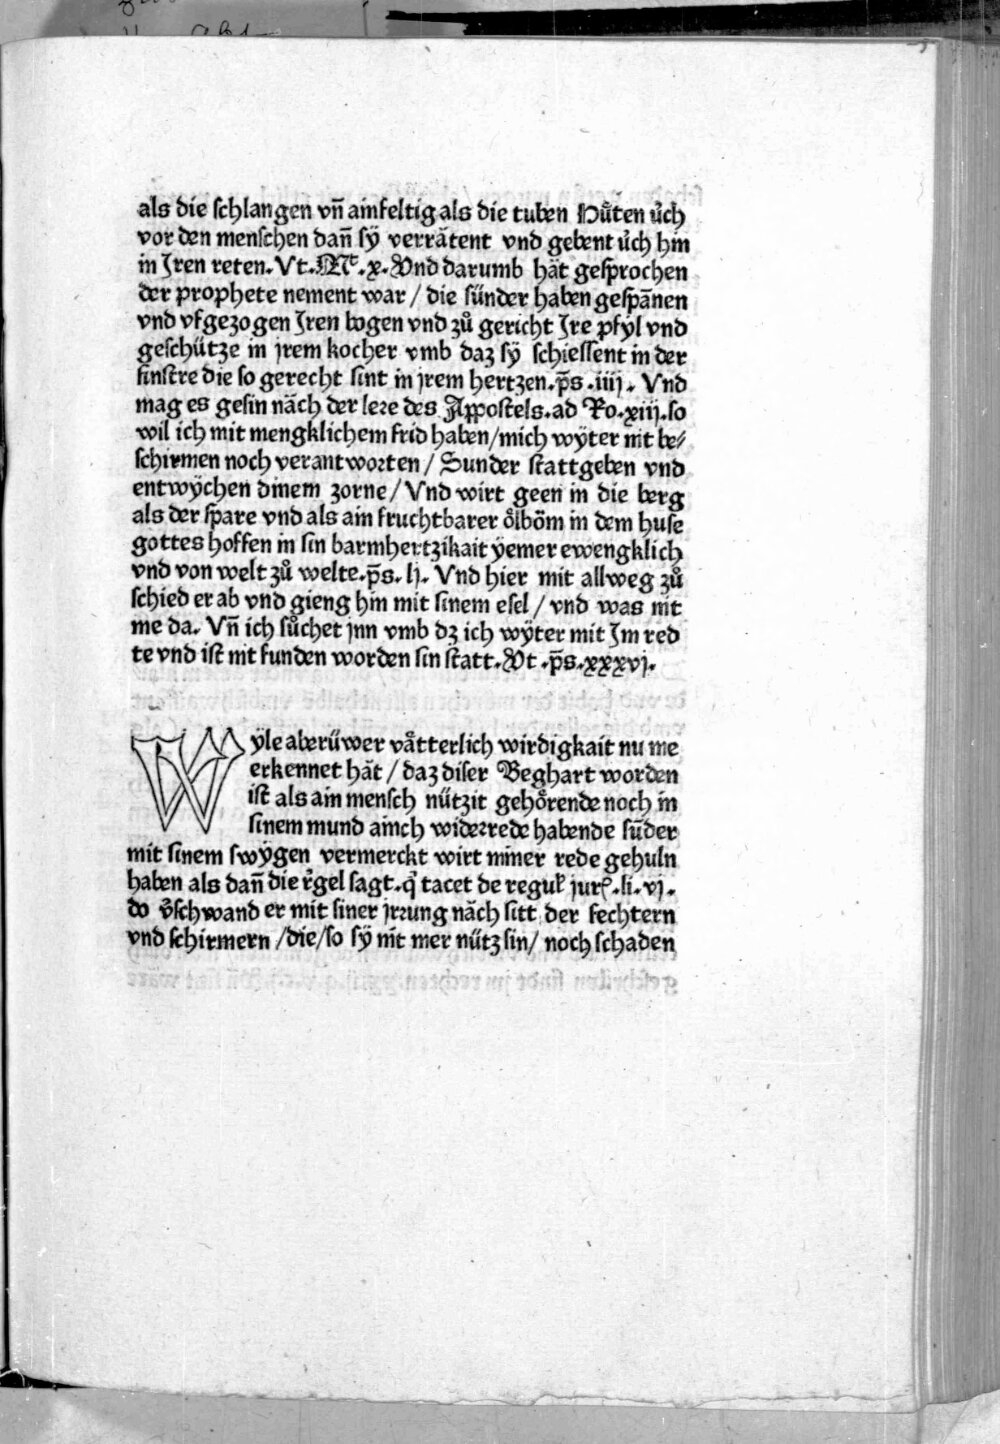 als die schlangen vn̄ ainfeltig als die tuben Hu̍ten u̍ch
vor den menschen dan̄ sÿ verrätent vnd gebent u̍ch hin
in Jren reten. Vt. Mt. x. Vnd darumb hät gesprochen
der prophete nement war / die sünder haben gespānen
vnd vfgezogen Jren bogen vnd zů gericht Jre pfÿl vnd
geschütze in jrem kocher vmb daz sÿ schiessent in der
finstre die so gerecht sint in jrem hertzen. p̄s. iiij. Vnd
mag es gesin näch der lere des Appostels. ad Ro. xiij. so
wil ich mit mengklichem frid haben / mich wÿter nit be⸗
schirmen noch verantworten / Sunder stattgeben vnd
entwÿchen dinem zorne / Vnd wirt geen in die berg
als der spare vnd als ain fruchtbarer o̊lböm in dem huse
gottes hoffen in sin barmhertzikait ÿemer ewengklich
vnd von welt zů welte. p̄s. lj. Vnd hier mit allweg zů
schied er ab vnd gieng hin mit sinem esel / vnd was nit
me da. Vn̄ ich sůchet jnn vmb dz ich wÿter mit Jm red
te vnd ist nit funden worden sin statt. Vt . p̄s. xxxvj.
WYle aber üwer våtterlich wirdigkait nu me
erkennet hät / daz diser Beghart worden
ist als ain mensch nützit gehörende noch in
sinem mund ainch widerrede habende sūder
mit sinem swÿgen vermerckt wirt miner rede gehuln
haben als dan̄ die r̓gel sagt. q̓ tacet de regul̓ jurꝭ. li. vj.
do v̓schwand er mit siner jrrung näch sitt der fechtern
vnd schirmern / die / so sÿ nit mer nütz sin / noch schaden